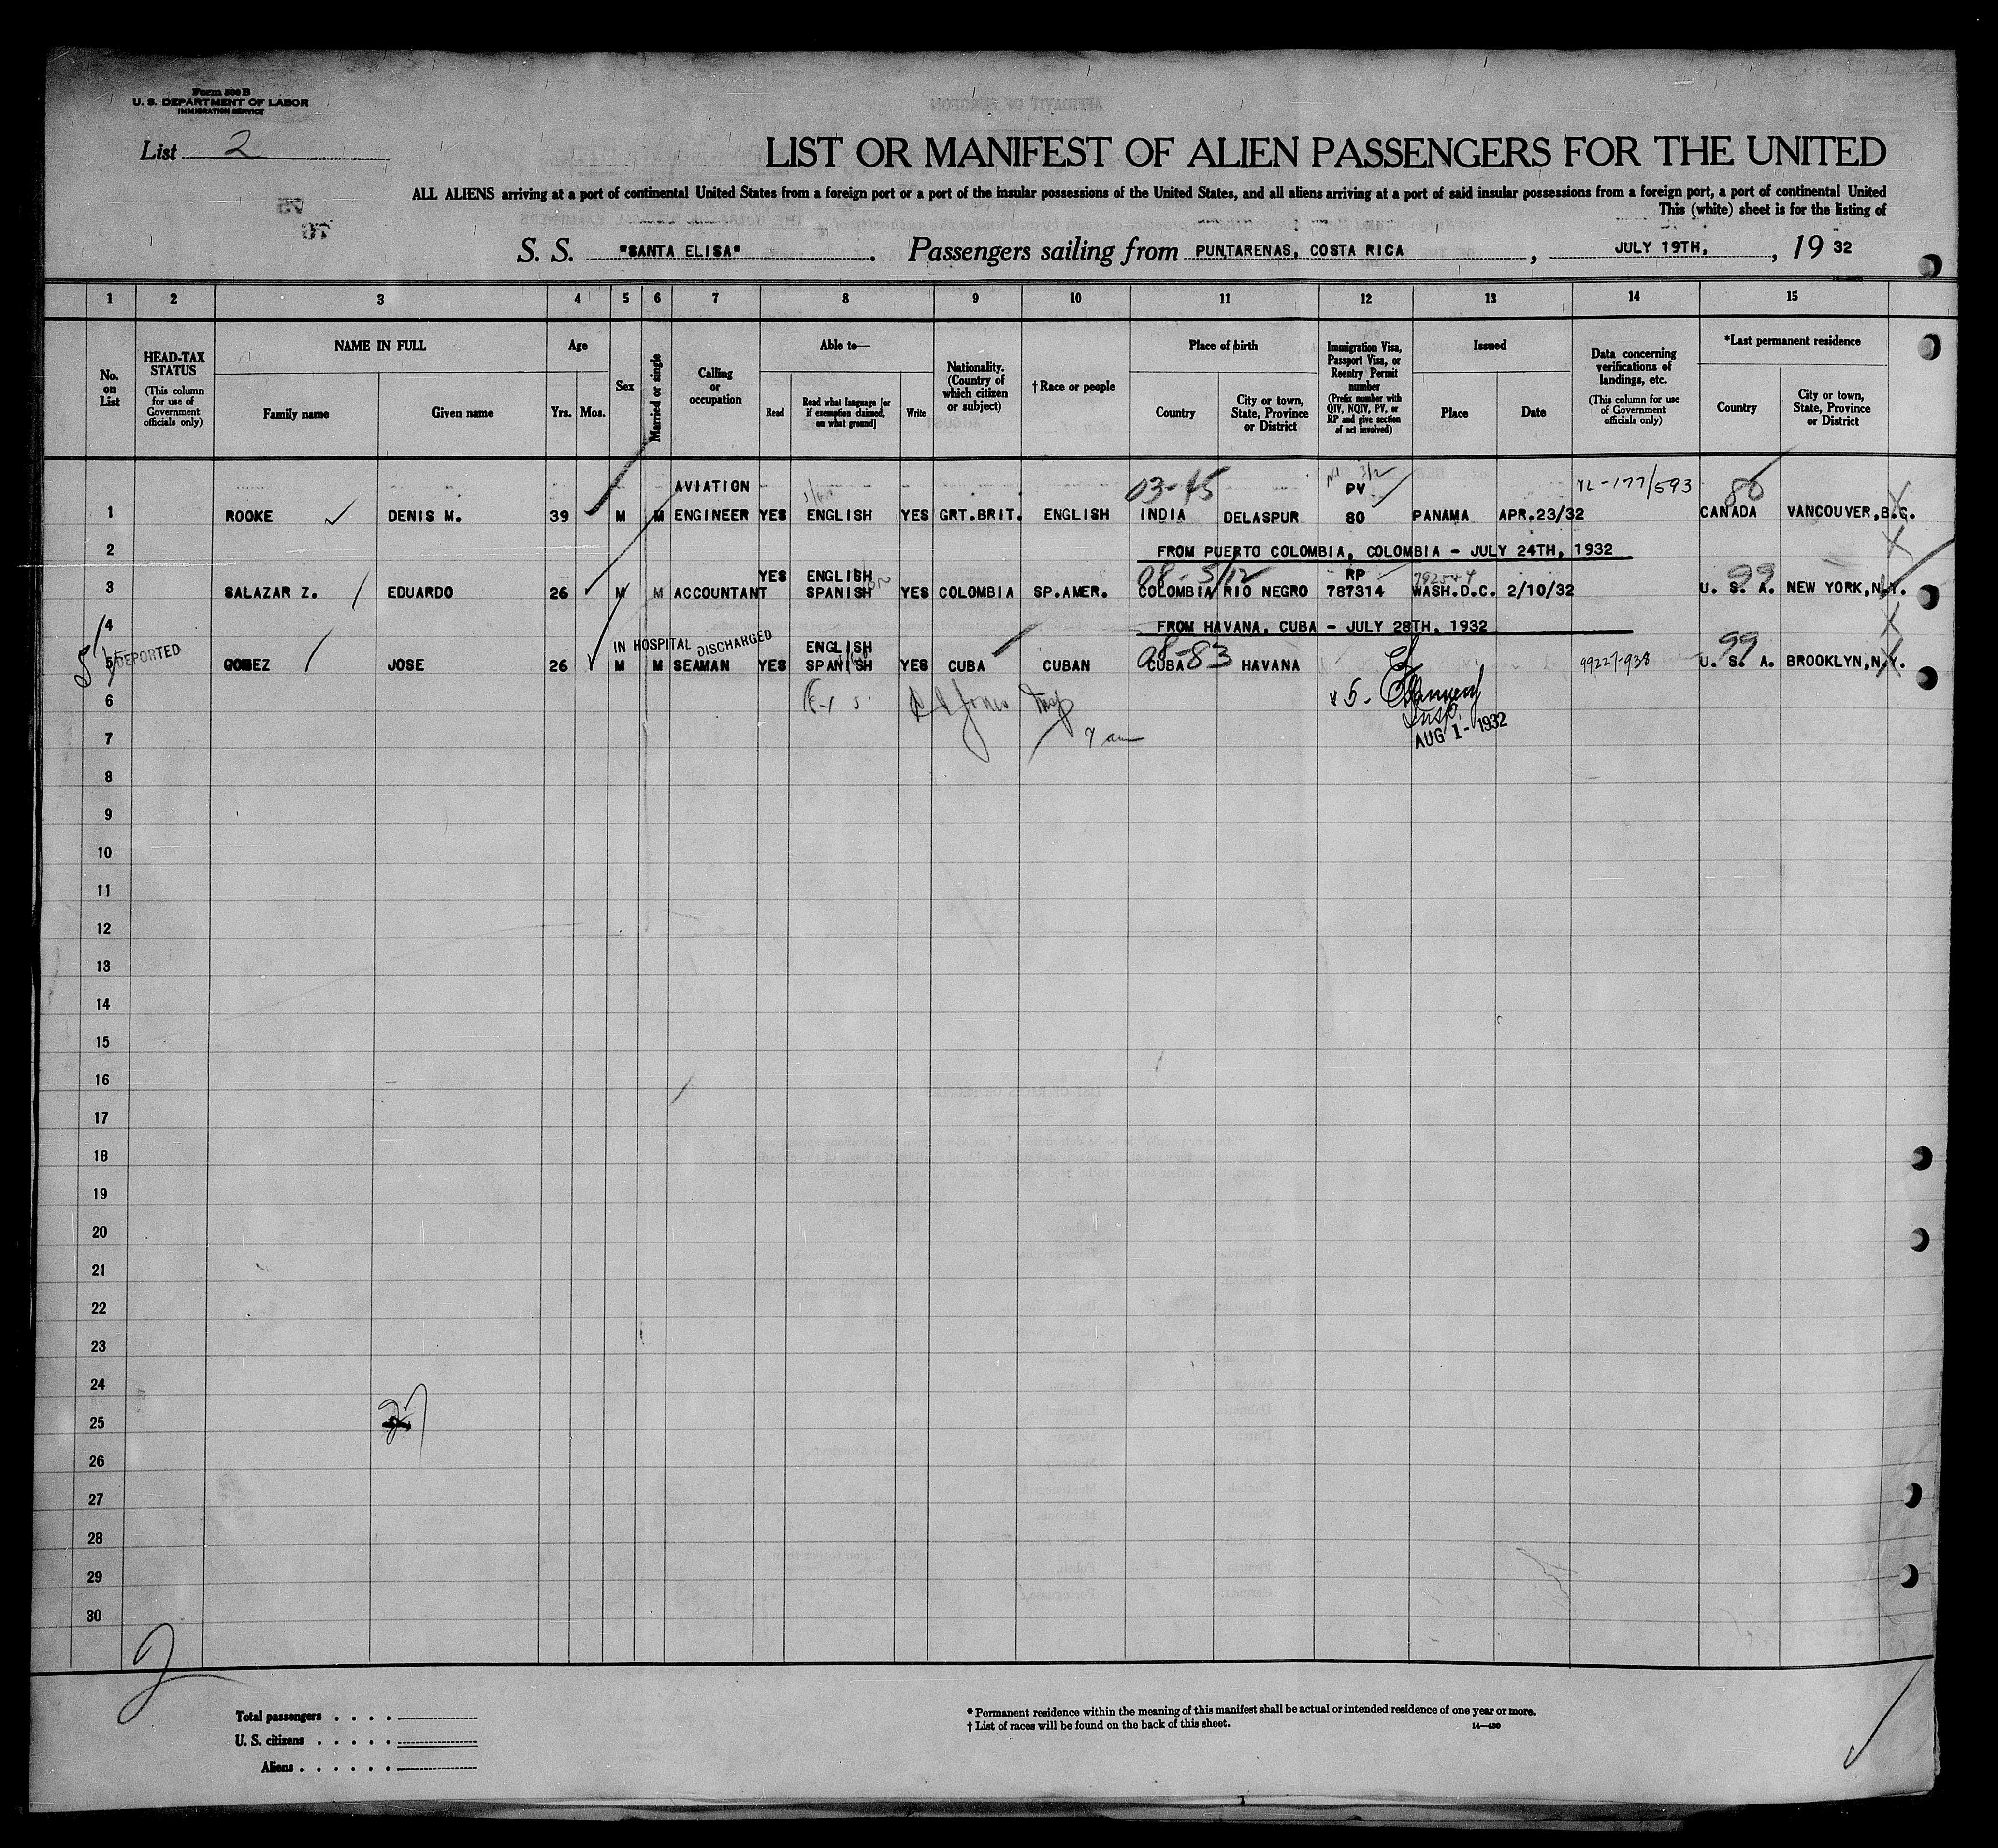 Form 500 B
U. S. DEPARTMENT OF LABOR
IMMIGRATION SERVICE
List 2
LIST OR MANIFEST OF ALIEN PASSENGERS FOR THE UNITED
ALL ALIENS arriving at a port of continental United States from a foreign port or a port of the insular possessions of the United States, and all aliens arriving at a port of said insular possessions from a foreign port, a port of continental United
This (white) sheet is for the listing of
S. S. "SANTA ELISA". Passengers sailing from PUNTARENAS, COSTA RICA, JULY 19TH, 19 32
1 2 3 4 5 6 7 8 9 10 11 12 13 14 15
No. on List
HEAD-TAX STATUS
(This column for use of Government officials only)
NAME IN FULL
Family name
Given name
Age
Yrs. Mos.
Sex
Married or single
Calling or occupation
Able to—
Read
Read what language [or if exemption claimed, on what ground]
Write
Nationality. (Country of which citizen or subject)
† Race or people
Place of birth
Country
City or town, State, Province or District
Immigration Visa, Passport Visa, or Reentry Permit number
(Prefix number with QIV, NQIV, PV, or RP and give section of act involved)
Issued
Place
Date
Data concerning verifications of landings, etc.
(This column for use of Government officials only)
*Last permanent residence
Country
City or town, State, Province or District
AVIATION 03-45 3/2 PV 177/593 80
1 ROOKE DENIS M. 39 M M ENGINEER YES ENGLISH YES GRT.BRIT. ENGLISH INDIA DELASPUR 80 PANAMA APR.23/32 CANADA VANCOUVER,B.C.
2 FROM PUERTO COLOMBIA, COLOMBIA - JULY 24TH, 1932
YES ENGLISH 08-5/12 RP 99
3 SALAZAR Z. EDUARDO 26 M M ACCOUNTANT SPANISH YES COLOMBIA SP.AMER. COLOMBIA RIO NEGRO 787314 WASH.D.C. 2/10/32 U. S. A. NEW YORK,N.Y.
4 FROM HAVANA, CUBA - JULY 28TH, 1932
DEPORTED IN HOSPITAL DISCHARGED ENGLISH 08-83 99
5 GOMEZ JOSE 26 M M SEAMAN YES SPANISH YES CUBA CUBAN CUBA HAVANA 99227-938 U. S. A. BROOKLYN,N.Y.
6
Insp.
AUG 1 - 1932
7
8
9
10
11
12
13
14
15
16
17
18
19
20
21
22
23
24
25
26
27
28
29
30
2
Total passengers
U. S. citizens
Aliens
* Permanent residence within the meaning of this manifest shall be actual or intended residence of one year or more.
† List of races will be found on the back of this sheet.
14—430